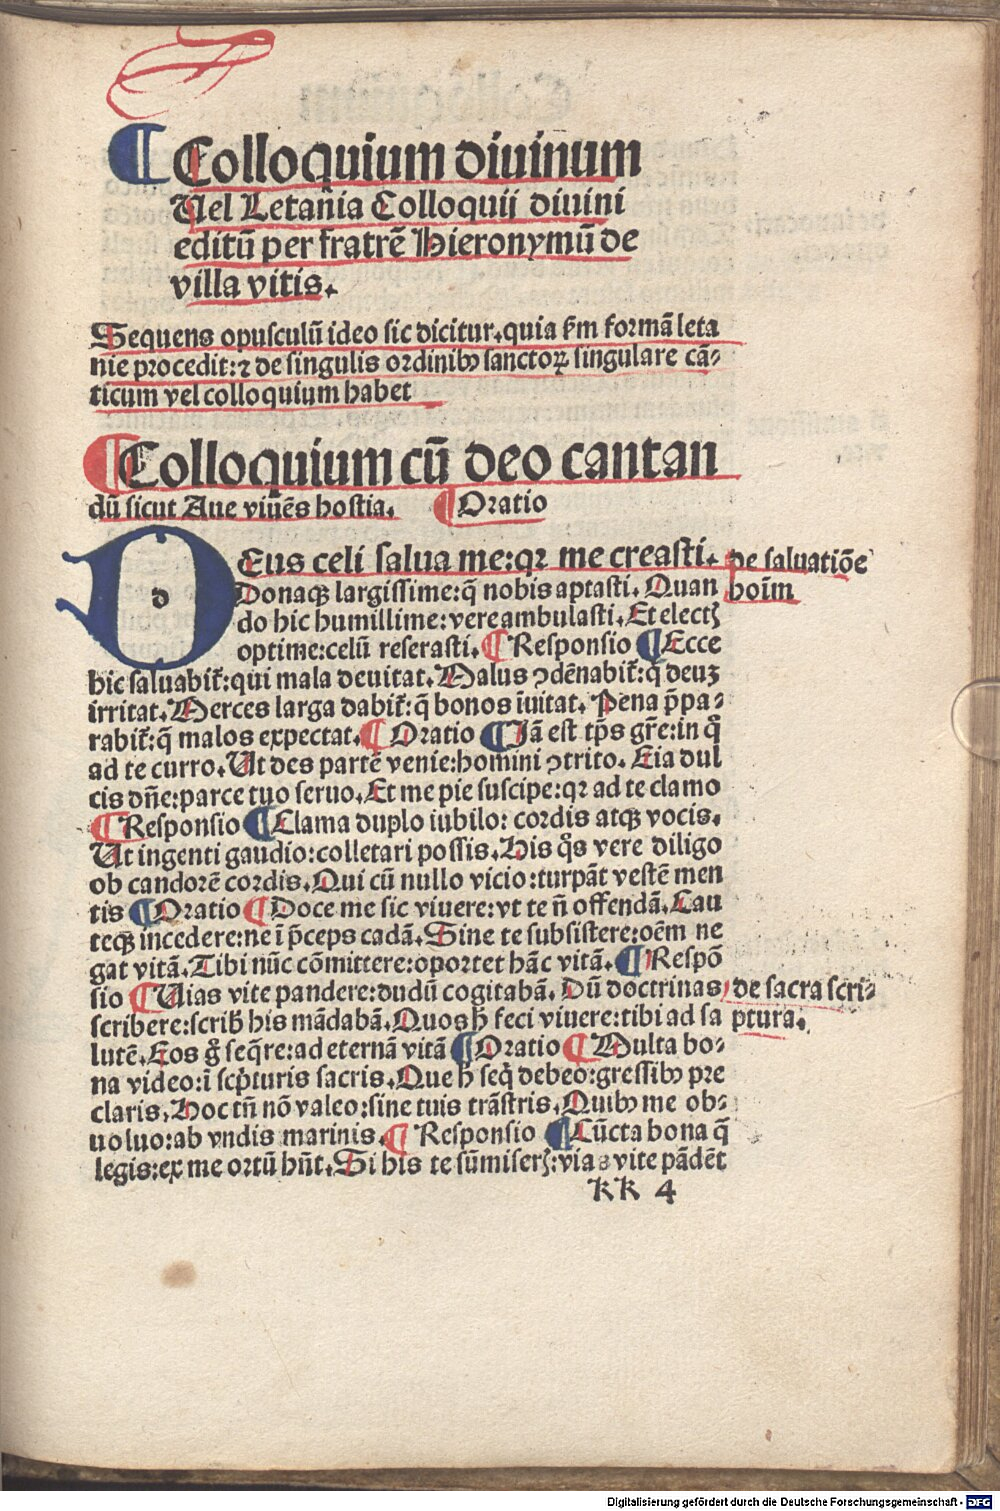 Colloquium diuinum
Uel Letania Colloquij diuini
editū per fratrē Hieronymū de
villa vitis.
Sequens opusculū ideo sic dicitur. quia ẜm formā leta
nie procedit: ⁊ de singulis ordinibꝰ sanctoꝝ singulare cā⸗
ticum vel colloquium habet
Colloquium cū deo cantan
dū sicut Aue viuēs hostia. Oratio
DEus celi salua me: qꝛ me creasti.
Donaqꝫ largissime: q̄ nobis aptasti. Quan
do hic humillime: vere ambulasti. Et electꝫ
optime: celū reserasti. Responsio Ecce
hic saluabit̄: qui mala deuitat. Malus ꝯdēnabit̄: q̄ deuꝫ
irritat. Merces larga dabit̄: q̄ bonos īuitat. Pena p̄pa⸗
rabit̄: q̄ malos expectat. Oratio Jā est tp̄s gr̄e: in q̊
ad te curro. Ut des partē venie: homini ꝯtrito. Eia dul
cis dn̄e: parce tuo seruo. Et me pie suscipe: qꝛ ad te clamo
Responsio Clama duplo iubilo: cordis atqꝫ vocis.
Ut ingenti gaudio: colletari possis. His q̊s vere diligo
ob candorē cordis. Qui cū nullo vicio: turpāt vestē men
tis Oratio Doce me sic viuere: vt te n̄ offendā. Cau
teqꝫ incedere: ne ī p̄ceps cadā. Sine te subsistere: oēm ne
gat vitā. Tibi nūc cōmittere: oportet hāc vitā. Respō
sio Uias vite pandere: dudū cogitabā. Dū doctrinas
scribere: scrib̄ his mādabā. Quos h̄ feci viuere: tibi ad sa
lutē. Eos g̊ seq̄re: ad eternā vitā Oratio Multa bo⸗
na video: ī scp̄turis sacris. Que h̄ seq̄ debeo: gressibꝰ pre
claris. Hoc tn̄ nō valeo: sine tuis trāstris. Quibꝰ me ob⸗
uoluo: ab vndis marinis. Responsio Cūcta bona q̄
legis: ex me ortū hn̄t. Si his te sūmiserꝭ: vias vite pādēt
kk 4
de saluatiōe
hoīm
de sacra scri⸗
ptura.
Digitalisierung gefördert durch die Deutsche Forschungsgemeinschaft - DFG